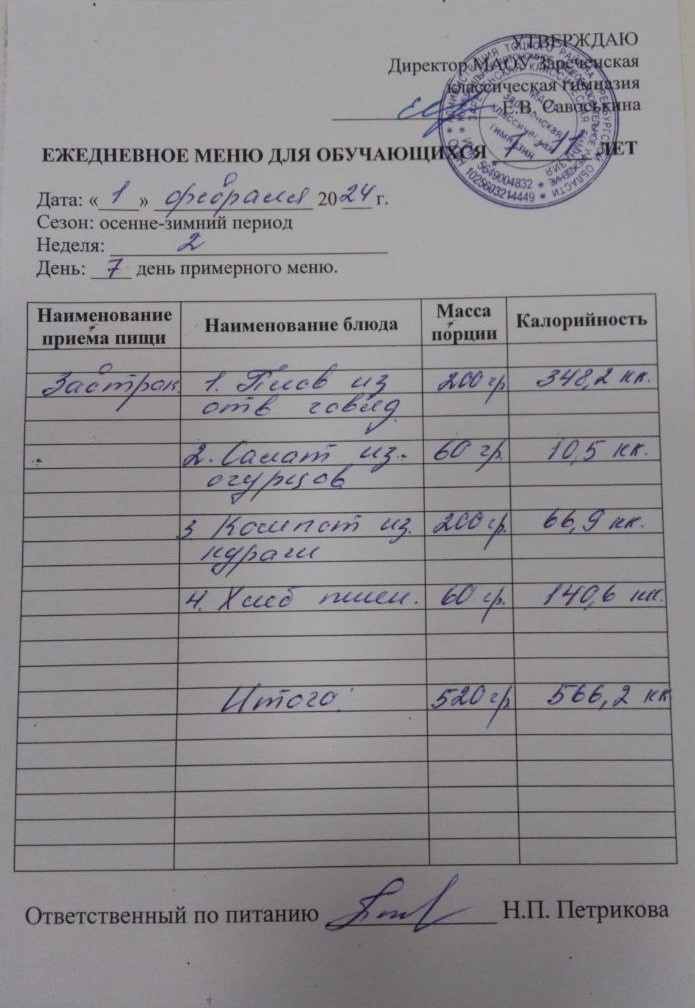 УТВЕРЖДАЮ
Директор МАОУ Зареченская
классическая гимназия
Е.В. Савоськина
ЕЖЕДНЕВНОЕ МЕНЮ ДЛЯ ОБУЧАЮЩИХСЯ 7 - 11 ЛЕТ
Дата: «1» февраля 2024 г.
Сезон: осенне-зимний период
Неделя: 2
День: 7 день примерного меню.
Наименование приема пищи Наименование блюда Масса порции Калорийность
Завтрак. 1. Плов из 200 гр 348,2 кк.
отв говяд.
2. Салат из 60 гр. 10,5 кк.
огурцов
3 Компот из 200 гр. 66,9 кк.
кураги
4. Хлеб пшен. 60 гр. 140,6 кк.
Итого: 520 гр 566,2 кк
Ответственный по питанию Н.П. Петрикова
5649004832
1025603214449